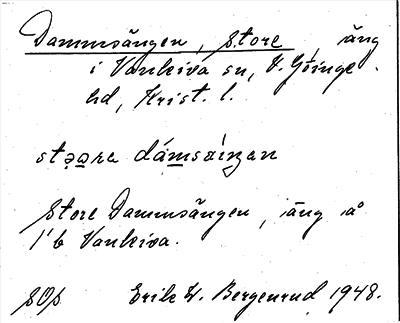 Dammsängen, Store, äng
i Vankiva sn, V. Göinge
hd, Krist. l.
stǝo̲ra dám̲sæ̀ŋan
Store Dammsängen, äng å
1/6 Vankiva.
SOs Erik W. Bergenrud 1948.